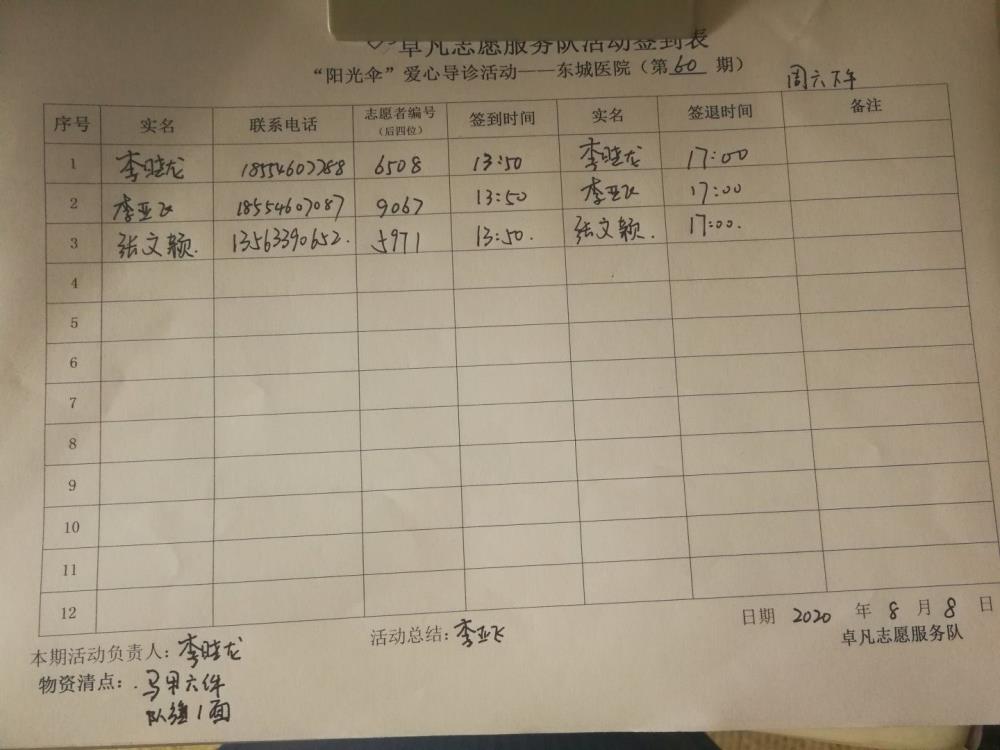 卓凡志愿服务队活动签到表
“阳光伞”爱心导诊活动——东城医院（第 60 期）
周六下午
序号 实名 联系电话 志愿者编号（后四位） 签到时间 实名 签退时间 备注
1 李晓龙 18554607288 6508 13:50 李晓龙 17:00
2 李亚飞 18554607087 9067 13:50 李亚飞 17:00
3 张文颖. 13563390652. 5971 13:50. 张文颖. 17:00.
4
5
6
7
8
9
10
11
12
日期 2020 年 8 月 8 日
本期活动负责人：李晓龙 活动总结：李亚飞 卓凡志愿服务队
物资清点：. 马甲六件
队旗1面